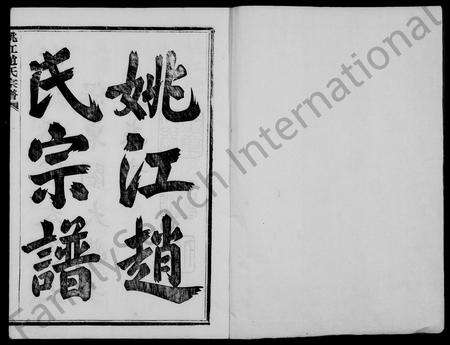 姚江趙
氏宗譜
FamilySearch International